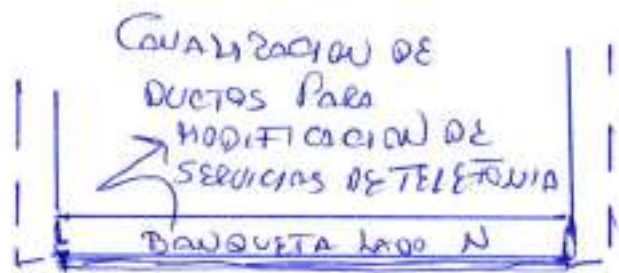 CANALIZACION DE
DUCTOS PARA
MODIFICACION DE
SERVICIOS DE TELEFONIA
BANQUETA LADO N